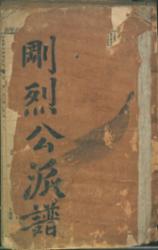 剛烈公派譜